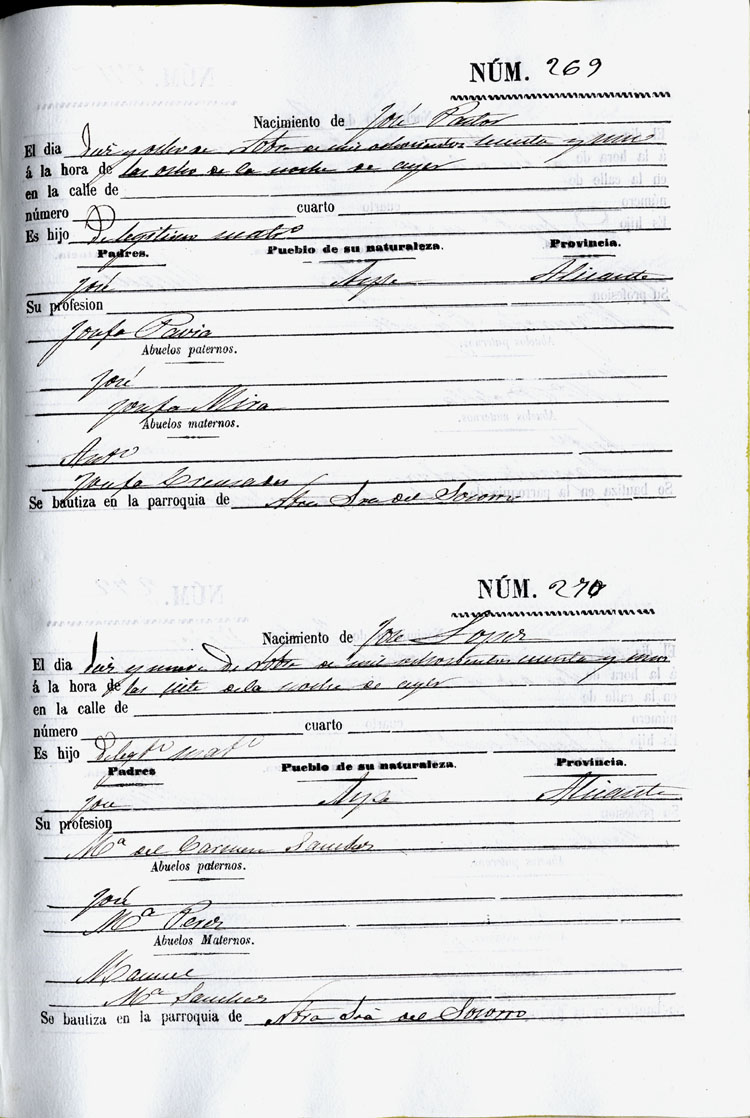 NÚM. 269
Nacimiento de José Pastor
El dia diez y ocho de 8bre de mil ochocientos y uno
á la hora de las ocho de la noche de ayer
en la calle de
número cuarto
Es hijo de legitimo matº
Padres. Pueblo de su naturaleza. Provincia.
José Aspe Alicante
Su profesion
Josefa Pavia
Abuelos paternos.
José
Josefa Mira
Abuelos maternos.
Antº
Josefa Cremades
Se bautiza en la parroquia de Ntra Sra del Socorro
NÚM. 270
Nacimiento de José Lopez
El dia diez y nueve de 8bre de mil ochocientos y uno
á la hora de las siete de la noche de ayer
en la calle de
número cuarto
Es hijo de legtº matº
Padres Pueblo de su naturaleza. Provincia.
José Aspe Alicante
Su profesion
Mª del Carmen Sanchez
Abuelos paternos.
José
Mª Perez
Abuelos Maternos.
Manuel
Mª Sanchez
Se bautiza en la parroquia de Ntra Sra del Socorro